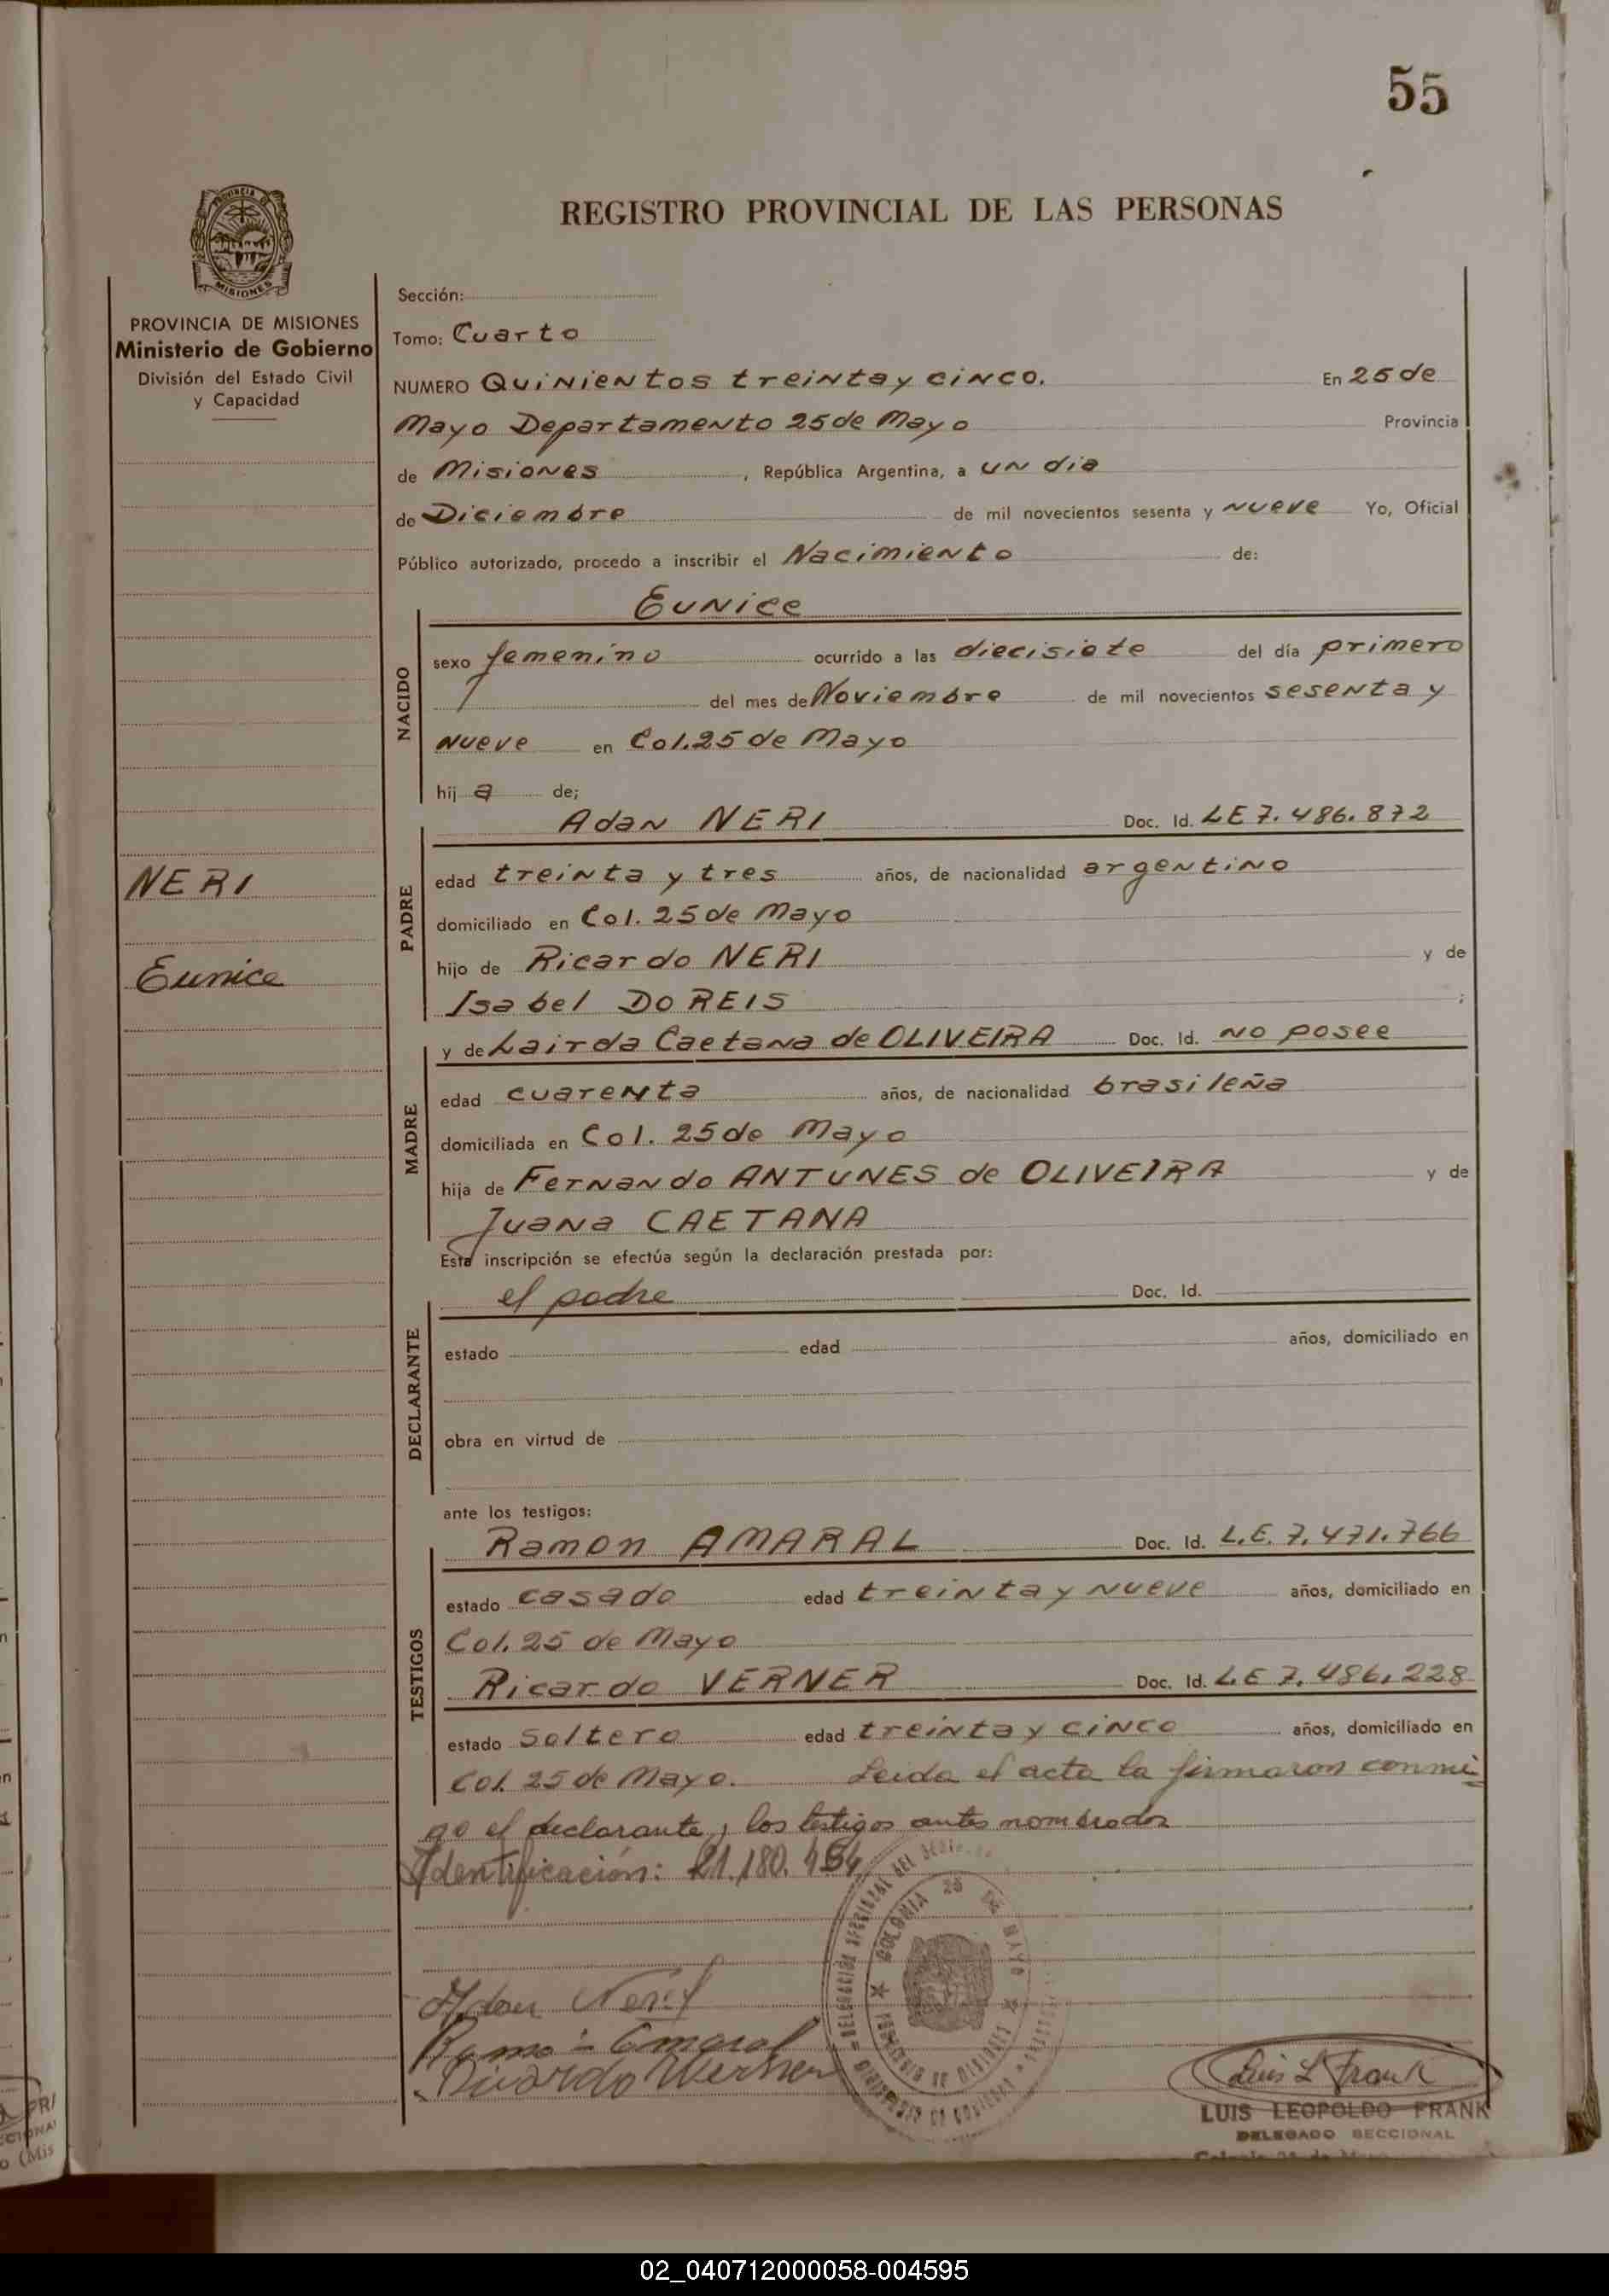 55
PROVINCIA DE
MISIONES
REGISTRO PROVINCIAL DE LAS PERSONAS
PROVINCIA DE MISIONES
Ministerio de Gobierno
División del Estado Civil
y Capacidad
NERI
Eunice
Sección:
Tomo: Cuarto
NUMERO Quinientos treinta y cinco. En 25 de
Mayo Departamento 25 de Mayo Provincia
de Misiones, República Argentina, a un dia
de Diciembre de mil novecientos sesenta y nueve Yo, Oficial
Público autorizado, procedo a inscribir el Nacimiento de:
NACIDO
Eunice
sexo femenino ocurrido a las diecisiete del día primero
del mes de Noviembre de mil novecientos sesenta y
nueve en Col. 25 de Mayo
hij a de;
PADRE
Adan NERI Doc. Id. LE 7.486.872
edad treinta y tres años, de nacionalidad argentino
domiciliado en Col. 25 de Mayo
hijo de Ricardo NERI y de
Isabel DO REIS ;
MADRE
y de Lairda Caetana de OLIVEIRA Doc. Id. no posee
edad cuarenta años, de nacionalidad brasileña
domiciliada en Col. 25 de Mayo
hija de Fernando ANTUNES de OLIVEIRA y de
Juana CAETANA
Esta inscripción se efectúa según la declaración prestada por:
DECLARANTE
el padre Doc. Id.
estado edad años, domiciliado en
obra en virtud de
ante los testigos:
TESTIGOS
Ramon AMARAL Doc. Id. L.E. 7.471.766
estado casado edad treinta y nueve años, domiciliado en
Col. 25 de Mayo
Ricardo VERNER Doc. Id. L.E 7.486.228
estado soltero edad treinta y cinco años, domiciliado en
Col. 25 de Mayo. Leida el acta la firmaron conmi-
go el declarante y los testigos antes nombrados
Identificación: 21.180.454
COLONIA 25 DE MAYO
Adan Neri
Ramon Amaral
Ricardo Werner
Luis L Frank
LUIS LEOPOLDO FRANK
DELEGADO SECCIONAL
02_040712000058-004595